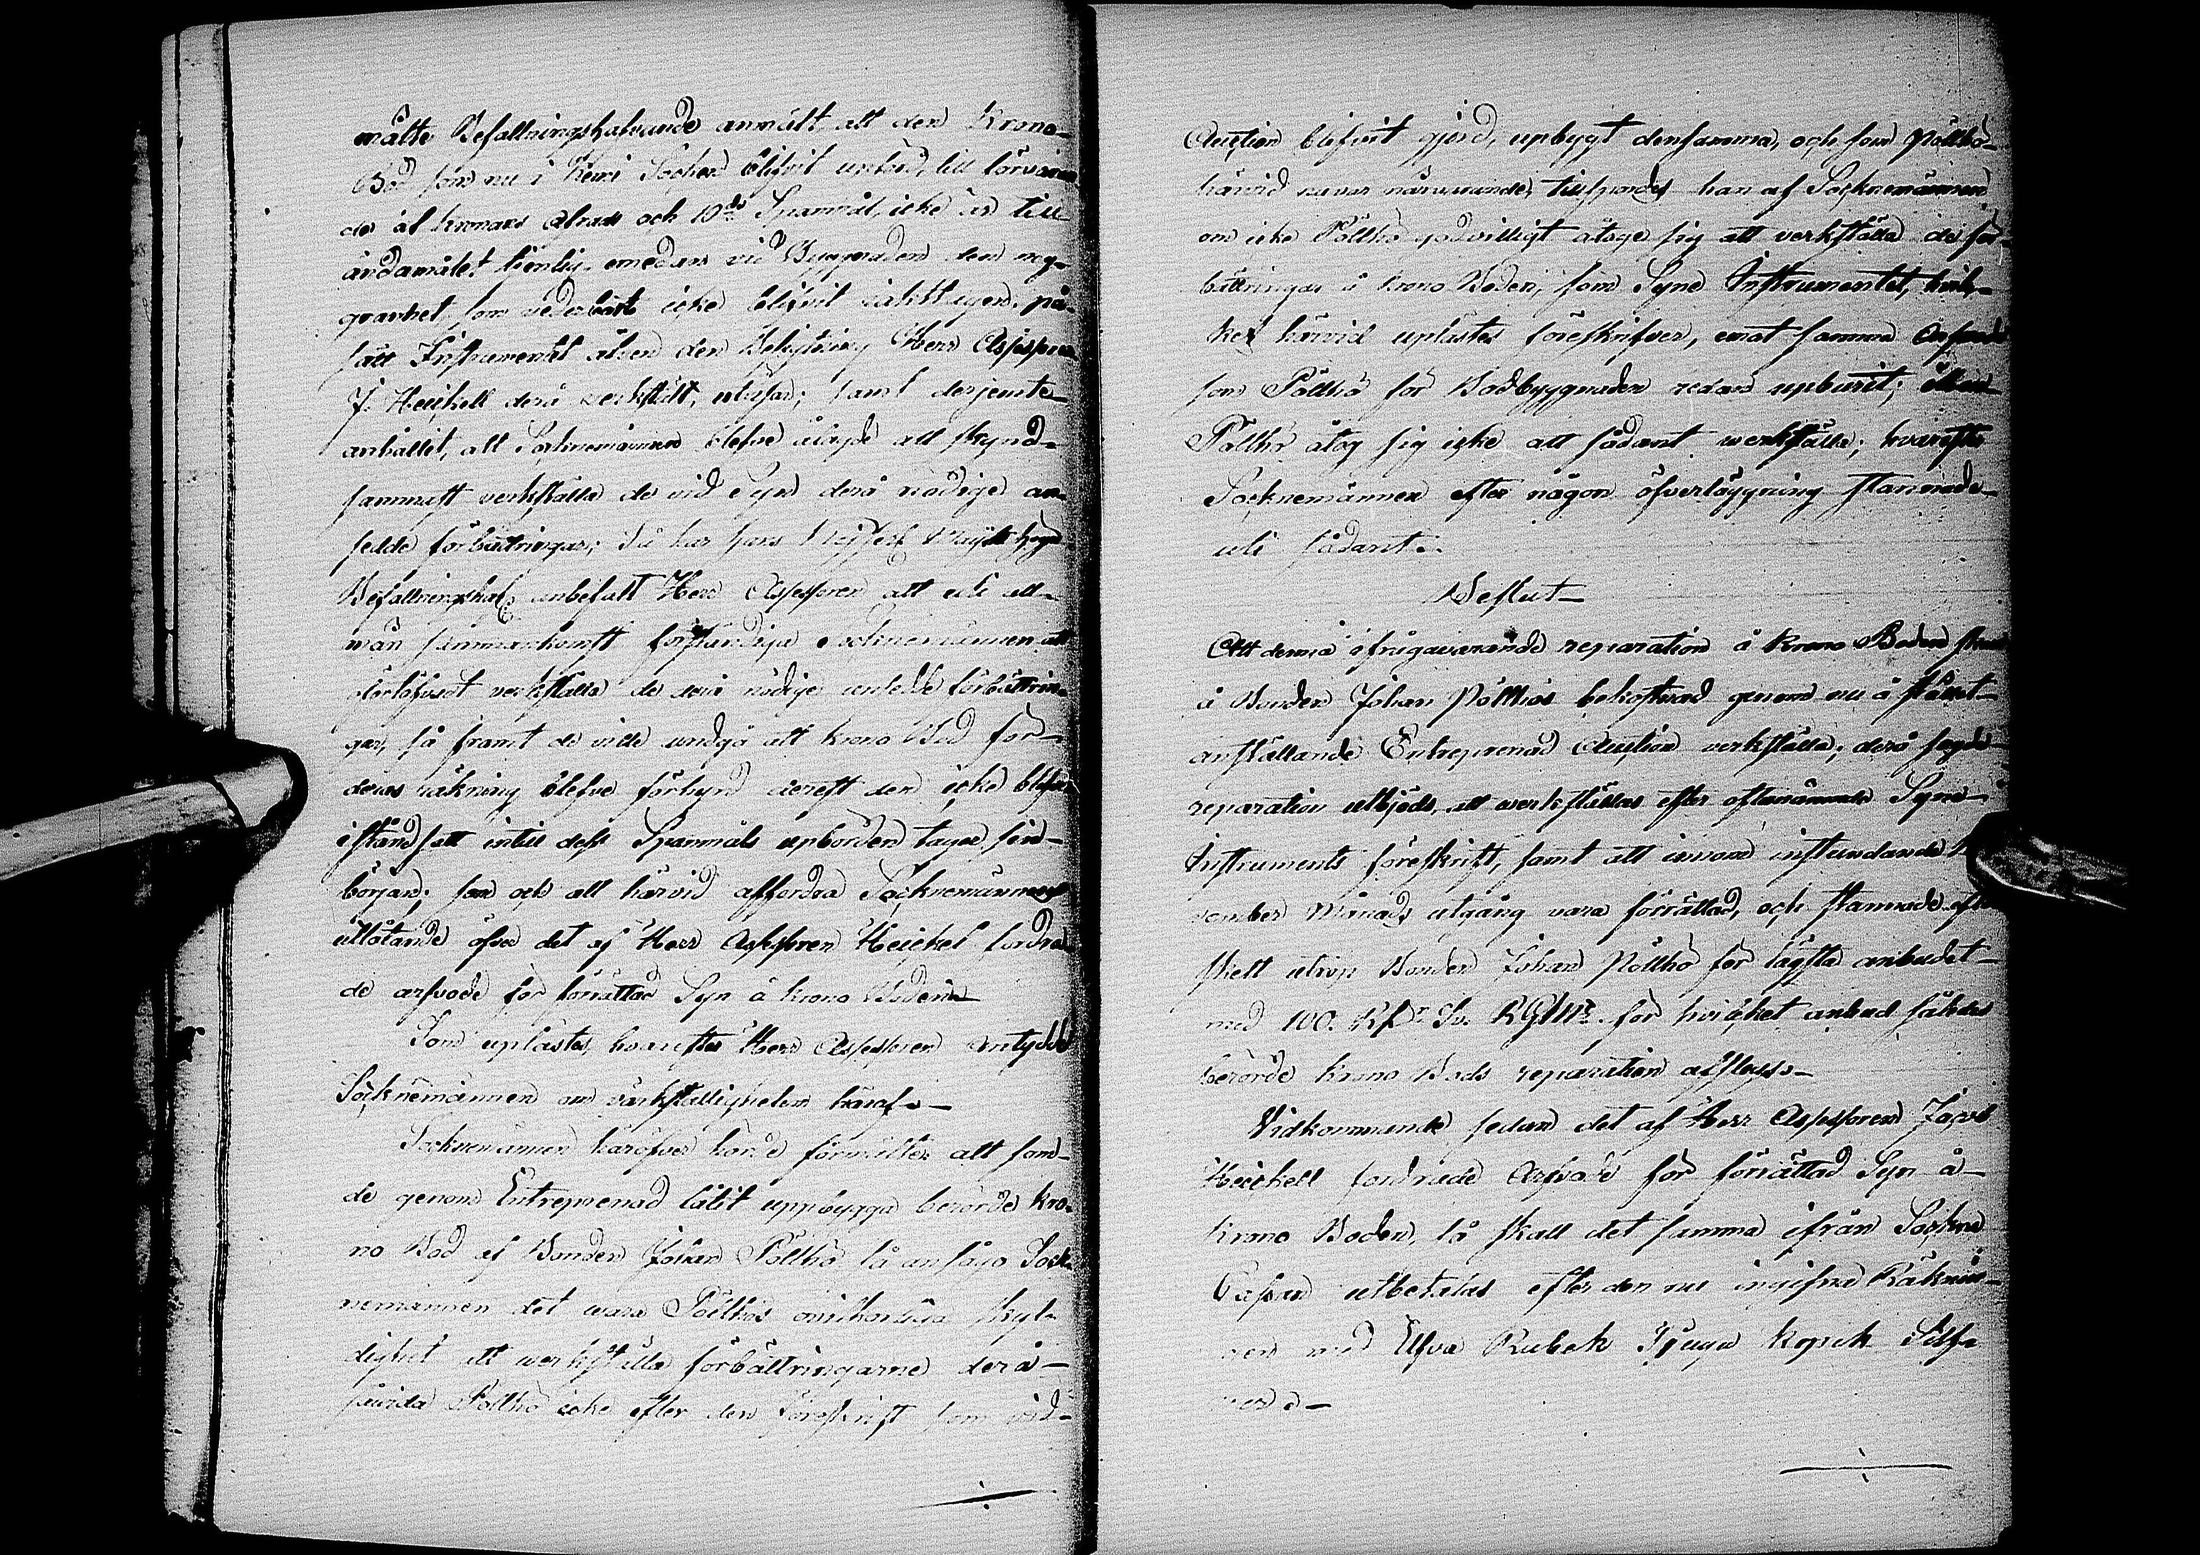 målte Befallningshafvande anmält, att den Krono-
Bod som nu i Kemi Socken blifvit upförd, till förvarin
de af kronans Afrads och 10de Spanmål, icke är till
ändamålet tjenlig emedan vid Byggnaden den nog-
granhet som vederbort icke blifvit iakttagen. på
sätt Instrumentet öfver den Besigtning Herr Assessoren
J. Heickell derå verkstält, utvisar; samt derjemte
anhållit, att Socknemännen blefve ålagde att skynd-
sammast verkställa de vid Syn derå nödige an-
sedde förbättringar; Så har hans Kejserl. Maijts högt
Befallningshaf. anbefalt Herr Assessoren att uti all-
män sammankomst förständiga Socknemännen att
oförtöfvadt verkställa de derå nödige ansedde förbättrin-
gar, så framt de ville undgå att krono Bod för
deras räkning blefve förhyrd derest den icke blefve
iståndsatt intill dess Spanmåls upbörden tager sin
början; som och att härvid affordra Socknemännens
utlåtande öfver det af Herr Assessoren Heickel fordra
de arfvode för förrättad Syn å krono Boden.
Som uplästes, hvarefter Herr Assessoren antydde
Socknemännen om värkställigheten häraf.
Socknemännen häröfver hörde förmälte, att som
de genom Entreprenad låtit uppbygga berörde kro-
no Bod af Bonden Johan Pöllhö så ansågo Sock
nemännen det vara Pöllhös ovilkorliga skyl-
dighet att werkställa förbättringarne derå
såvida Pöllhö icke efter den föreskrift som vid
Auction blifvit gjord, upbygt densamma, och som Pöllhö
härvid var närvarande, tillspordes han af Socknemännen
om icke Pöllhö godvilligt åtoge sig att verkställa de för-
bättringar å krono Boden, som Syne Instrumentet, hvil-
ket härvid uplästes föreskrifver, emot samma
som Pöllhö för Bodbyggnaden redan upburit;
Pöllhö åtog sig icke att sådant werkställa; hvarefter
Socknemännen efter någon öfverläggning stannade
uti sådant.
Beslut
Att denna ifrågavarande reparation å krono Boden skall
å Bonden Johan Pöllhös bekostnad genom nu å stället
anställande Entreprenad Auction verkställa; derå sagde
reparation utbjöds, att werkställas efter oftanämnde Syne
Instruments föreskrift, samt att innom instundande
vember Månads utgång vara förrättad, och stannade efter
skett utrop Bonden Johan Pöllhö för lägsta anbudet
med 100. Rdr Sv. RGlds. för hvilcket anbud således
berörde krono Bods reparation afslogs.
Vidkommande sedan det af Herr Assessoren Jacob
Heickell fordrade Arfvode för förrättad Syn å
krono Boden, så skall det samma ifrån Sockne
Cassan utbetalas efter den nu ingifne Räknin-
gen med Elfva Rubel Tjugu kopek Silf-
ver.